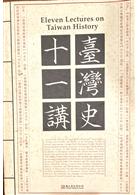 Eleven Lectures on
Taiwan History
臺灣史
十一講